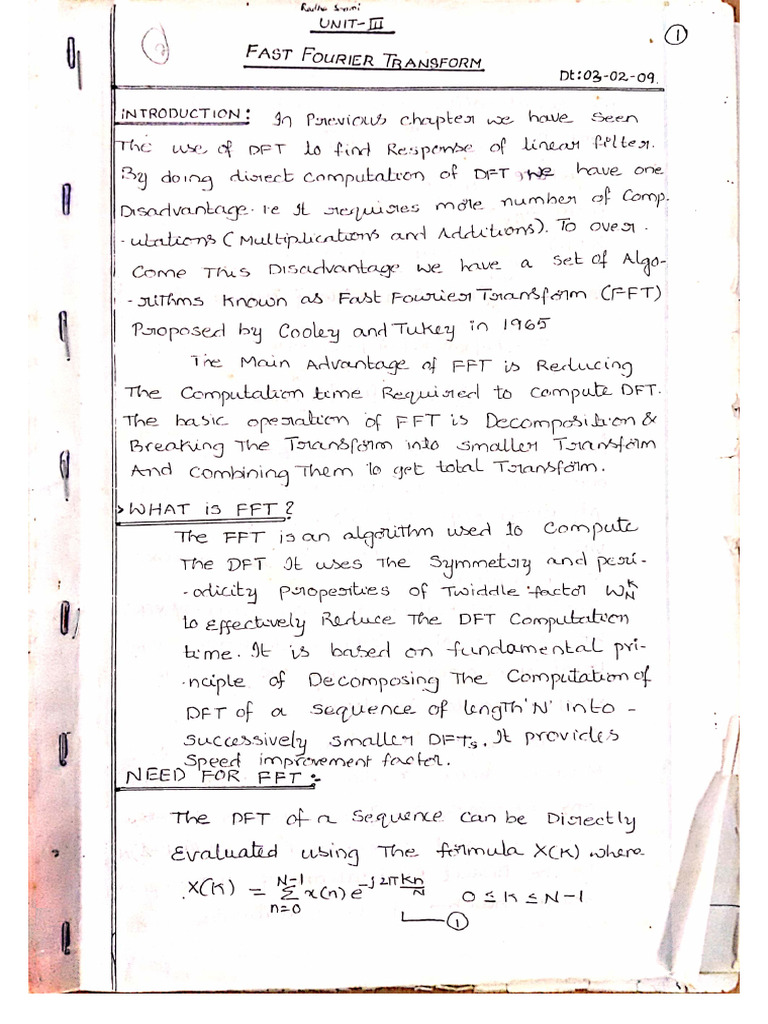 UNIT-III
1
FAST FOURIER TRANSFORM
Dt:03-02-09.
INTRODUCTION: In Previous chapter we have seen
The use of DFT to find Response of linear filter.
By doing direct computation of DFT, we have one
Disadvantage. i.e It requires more number of Comp.
-utations (Multiplications and Additions). To over.
Come This Disadvantage we have a set of Algo-
-rithms known as Fast Fourier Transform (FFT)
Proposed by Cooley and Tukey in 1965
The Main Advantage of FFT is Reducing
The Computation time Required to compute DFT.
The basic operation of FFT is Decomposition &
Breaking The Transform into smaller Transform
And Combining Them to get total Transform.
>WHAT is FFT?
The FFT is an algorithm used to compute
The DFT It uses The Symmetry and peri-
-odicity properties of Twiddle factor W_N^K
to Effectively Reduce The DFT Computation
time. It is based on fundamental pri-
-nciple of Decomposing The Computation of
DFT of a sequence of length 'N' into -
Successively smaller DFTs. It provides
Speed improvement factor.
NEED FOR FFT:-
The DFT of a Sequence can be Directly
Evaluated using The formula X(K) where
X(K) = N-1 Σ n=0 x(n) e^-j2π Kn/N 0 ≤ K ≤ N-1
1